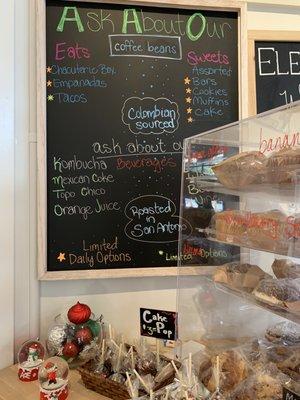 Ask About Our
coffee beans
Eats
Chacuterie Box
Empanadas
Tacos
Sweets
Assorted
Bars
Cookies
Muffins
Cake
Colombian
sourced
ask about our
Beverages
Kombucha
Mexican Coke
Topo Chico
Orange Juice
Roasted
in
San Antonio
Limited
Daily Options
Limited
ELE
banan
Cake
Pop